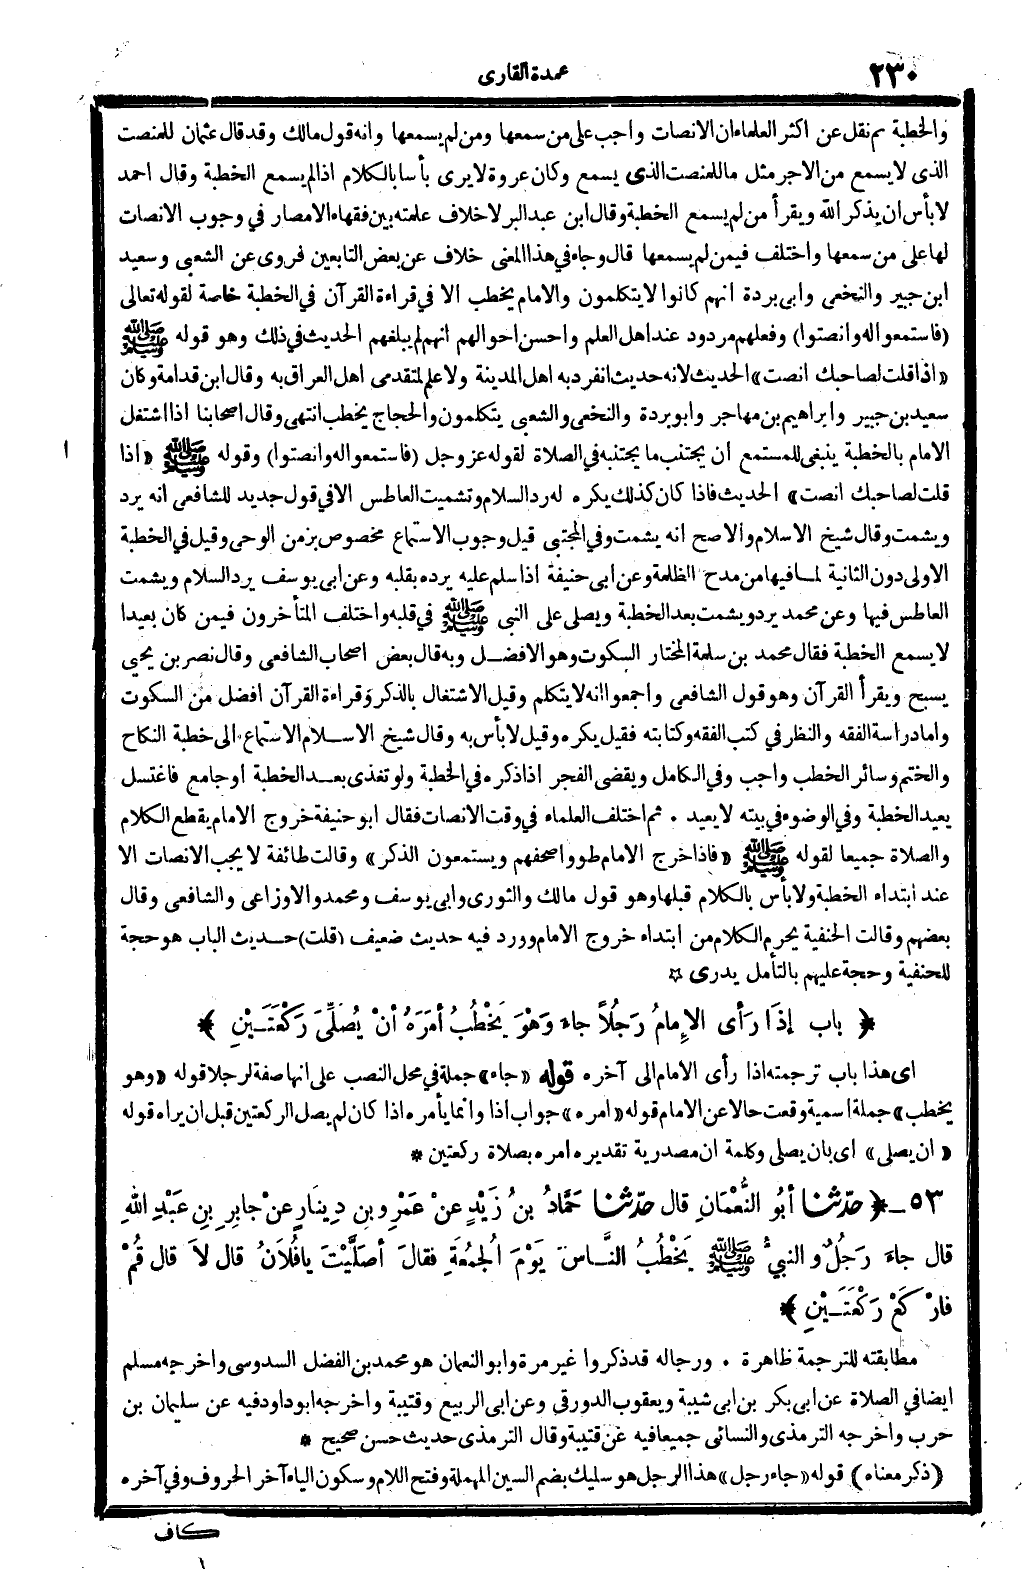 ٢٣٠
عمدة القارى
والخطبة ثم نقل عن اكثر العلماء ان الانصات واجب على من سمعها ومن لم يسمعها وانه قول مالك وقد قال عثمان للمنصت
الذى لا يسمع من الاجر مثل ما للمنصت الذى يسمع وكان عروة لا يرى بأسا بالكلام اذا لم يسمع الخطبة وقال احمد
لا بأس ان يذكر الله ويقرأ من لم يسمع الخطبة وقال ابن عبد البر لا خلاف علمته بين فقهاء الامصار في وجوب الانصات
لها على من سمعها واختلف فيمن لم يسمعها قال وجاء في هذا المعنى خلاف عن بعض التابعين فروى عن الشعبى وسعيد
ابن جبير والنخعى وابى بردة انهم كانوا لا يتكلمون والامام يخطب الا في قراءة القرآن في الخطبة خاصة لقوله تعالى
(فاستمعوا له وانصتوا) وفعلهم مردود عند اهل العلم واحسن احوالهم انهم لم يبلغهم الحديث في ذلك وهو قوله ﷺ
«اذا قلت لصاحبك انصت» الحديث لانه حديث انفرد به اهل المدينة ولا علم لمتقدمى اهل العراق به وقال ابن قدامة وكان
سعيد بن جبير وابراهيم بن مهاجر وابو بردة والنخعى والشعبى يتكلمون والحجاج يخطب انتهى وقال اصحابنا اذا اشتغل
الامام بالخطبة ينبغى للمستمع ان يجتنب ما يجتنبه في الصلاة لقوله عز وجل (فاستمعوا له وانصتوا) وقوله ﷺ «اذا
قلت لصاحبك انصت» الحديث فاذا كان كذلك يكره له رد السلام وتشميت العاطس الا في قول جديد للشافعى انه يرد
ويشمت وقال شيخ الاسلام والاصح انه يشمت وفي المجتبى قيل وجوب الاستماع مخصوص بزمن الوحى وقيل في الخطبة
الاولى دون الثانية لما فيها من مدح الظلمة وعن ابى حنيفة اذا سلم عليه يرده بقلبه وعن ابى يوسف يرد السلام ويشمت
العاطس فيها وعن محمد يرد ويشمت بعد الخطبة ويصلى على النبى ﷺ في قلبه واختلف المتأخرون فيمن كان بعيدا
لا يسمع الخطبة فقال محمد بن سلمة المختار السكوت وهو الافضل وبه قال بعض اصحاب الشافعى وقال نصر بن يحيى
يسبح ويقرأ القرآن وهو قول الشافعى واجمعوا انه لا يتكلم وقيل الاشتغال بالذكر وقراءة القرآن افضل من السكوت
واما دراسة الفقه والنظر في كتب الفقه وكتابته فقيل يكره وقيل لا بأس به وقال شيخ الاسلام الاستماع الى خطبة النكاح
والختم وسائر الخطب واجب وفي الكامل ويقضى الفجر اذا ذكره في الخطبة ولو تغذى بعد الخطبة او جامع فاغتسل
يعيد الخطبة وفي الوضوء في بيته لا يعيد . ثم اختلف العلماء في وقت الانصات فقال ابو حنيفة خروج الامام يقطع الكلام
والصلاة جميعا لقوله ﷺ «فاذا خرج الامام طووا صحفهم ويستمعون الذكر» وقالت طائفة لا يجب الانصات الا
عند ابتداء الخطبة ولا بأس بالكلام قبلها وهو قول مالك والثورى وابى يوسف ومحمد والاوزاعى والشافعى وقال
بعضهم وقالت الحنفية يحرم الكلام من ابتداء خروج الامام وورد فيه حديث ضعيف (قلت) حديث الباب هو حجة
للحنفية وحجة عليهم بالتأمل يدرى ☆
﴿ باب إِذَا رَأى الإِمامُ رَجُلاً جاءَ وَهْوَ يَخْطُبُ أمَرَهُ أنْ يُصَلِّىَ رَكْعَتَيْنِ ﴾
اى هذا باب ترجمته اذا رأى الامام الى آخره قوله «جاء» جملة في محل النصب على انها صفة لرجلا قوله «وهو
يخطب» جملة اسمية وقعت حالا عن الامام قوله «امره» جواب اذا وانما يأمره اذا كان لم يصل الركعتين قبل ان يراه قوله
«ان يصلى» اى بان يصلى وكلمة ان مصدرية تقديره امره بصلاة ركعتين *
٥٣ـ ﴿ حدّثنا أبُو النُّعْمَانِ قال حدّثنا حَمَّادُ بنُ زَيْدٍ عنْ عَمْرِو بنِ دِينَارٍ عنْ جابِرِ بنِ عَبْدِ اللهِ
قال جاءَ رَجُلٌ والنبيُّ ﷺ يَخْطُبُ النَّاسَ يَوْمَ الجُمُعَةِ فقالَ أصَلَّيْتَ يافُلاَنُ قال لاَ قال قُمْ
فارْكَعْ رَكْعَتَيْنِ ﴾
مطابقته للترجمة ظاهرة . ورجاله قد ذكروا غير مرة وابو النعمان هو محمد بن الفضل السدوسى واخرجه مسلم
ايضا في الصلاة عن ابى بكر بن ابى شيبة ويعقوب الدورقى وعن ابى الربيع وقتيبة واخرجه ابو داود فيه عن سليمان بن
حرب واخرجه الترمذى والنسائى جميعا فيه عن قتيبة وقال الترمذى حديث حسن صحيح *
(ذكر معناه) قوله «جاء رجل» هذا الرجل هو سليك بضم السين المهملة وفتح اللام وسكون الياء آخر الحروف وفي آخره
كاف